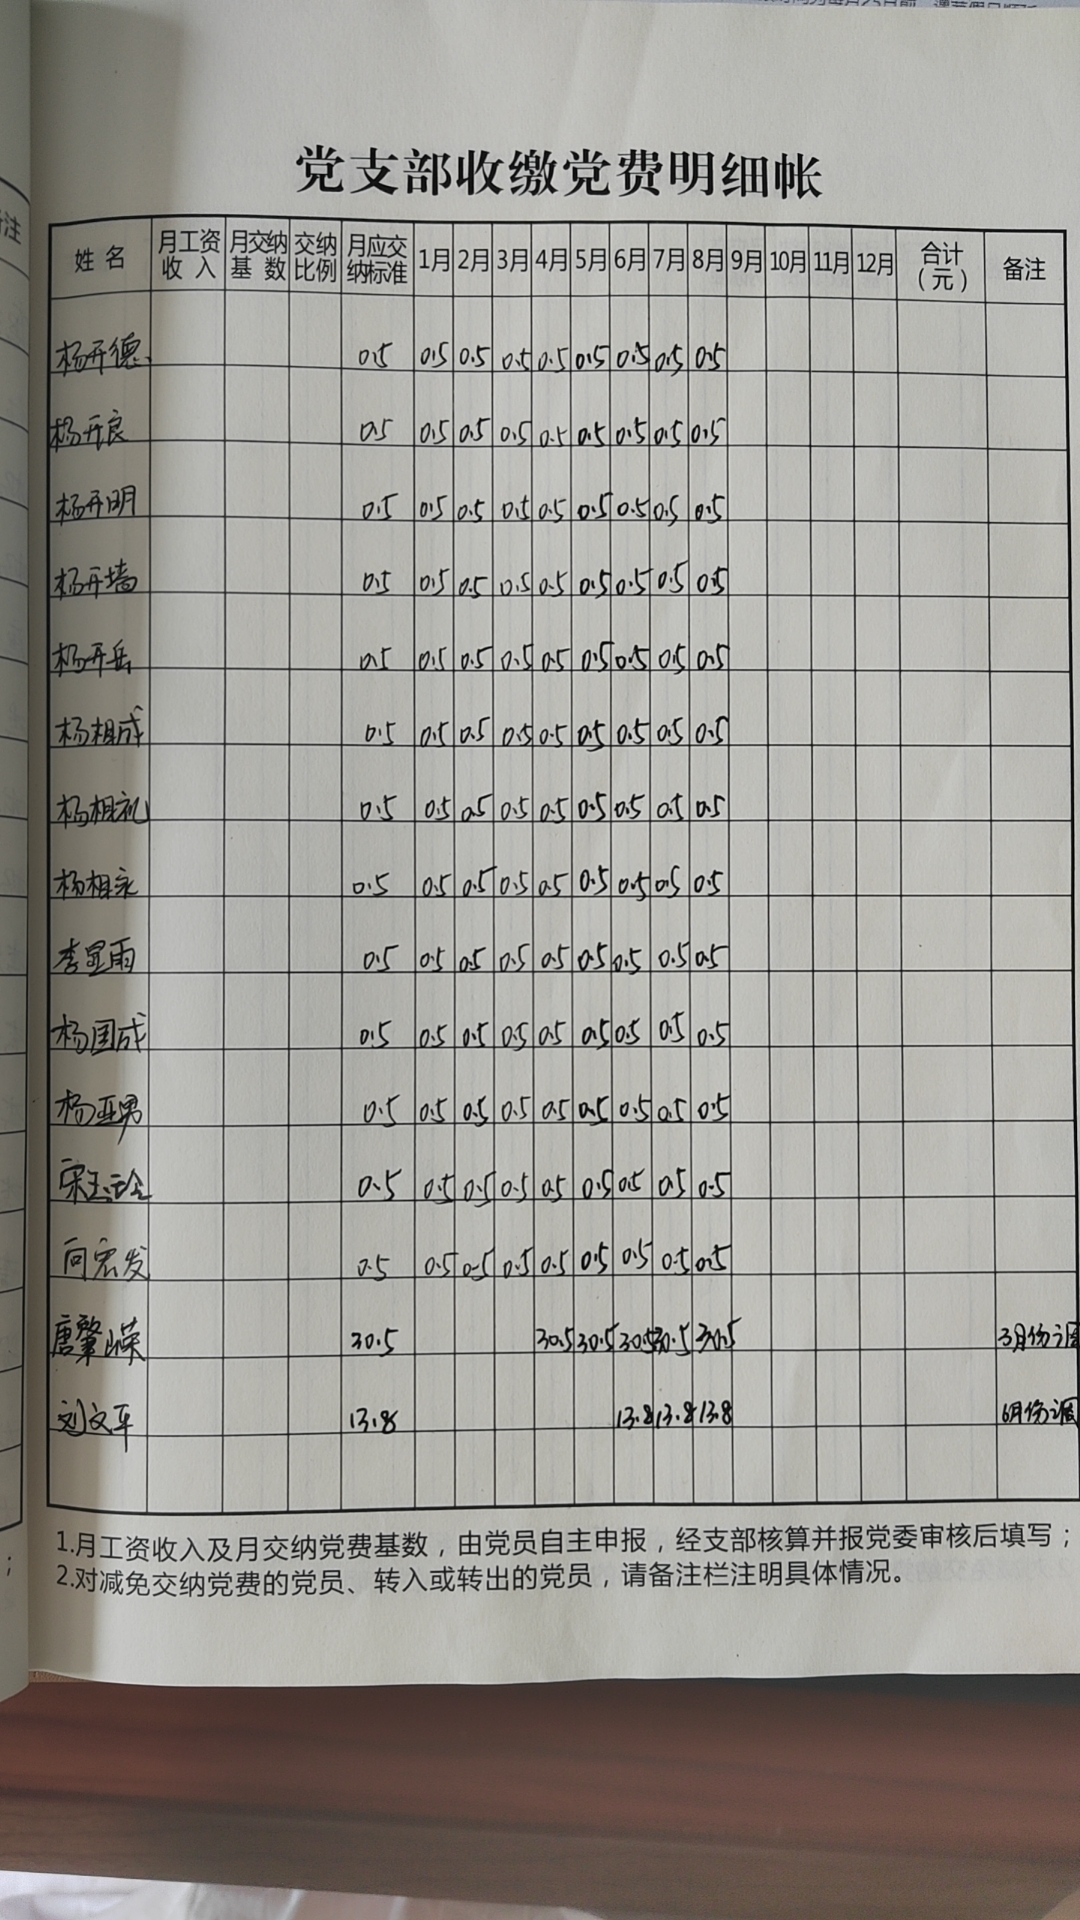 党支部收缴党费明细帐
姓名 月工资收入 月交纳基数 交纳比例 月应交纳标准 1月 2月 3月 4月 5月 6月 7月 8月 9月 10月 11月 12月 合计（元） 备注
杨开德 0.5 0.5 0.5 0.5 0.5 0.5 0.5 0.5 0.5
杨开良 0.5 0.5 0.5 0.5 0.5 0.5 0.5 0.5 0.5
杨开明 0.5 0.5 0.5 0.5 0.5 0.5 0.5 0.5 0.5
杨开墙 0.5 0.5 0.5 0.5 0.5 0.5 0.5 0.5 0.5
杨开岳 0.5 0.5 0.5 0.5 0.5 0.5 0.5 0.5 0.5
杨相成 0.5 0.5 0.5 0.5 0.5 0.5 0.5 0.5 0.5
杨相礼 0.5 0.5 0.5 0.5 0.5 0.5 0.5 0.5 0.5
杨相永 0.5 0.5 0.5 0.5 0.5 0.5 0.5 0.5 0.5
李显雨 0.5 0.5 0.5 0.5 0.5 0.5 0.5 0.5 0.5
杨国成 0.5 0.5 0.5 0.5 0.5 0.5 0.5 0.5 0.5
杨亚男 0.5 0.5 0.5 0.5 0.5 0.5 0.5 0.5 0.5
宋玉玲 0.5 0.5 0.5 0.5 0.5 0.5 0.5 0.5 0.5
向宏发 0.5 0.5 0.5 0.5 0.5 0.5 0.5 0.5 0.5
唐肇嵘 30.5 30.5 30.5 30.5 30.5 30.5 3月份调
刘文军 13.8 13.8 13.8 13.8 6月份调
1.月工资收入及月交纳党费基数，由党员自主申报，经支部核算并报党委审核后填写；
2.对减免交纳党费的党员、转入或转出的党员，请备注栏注明具体情况。